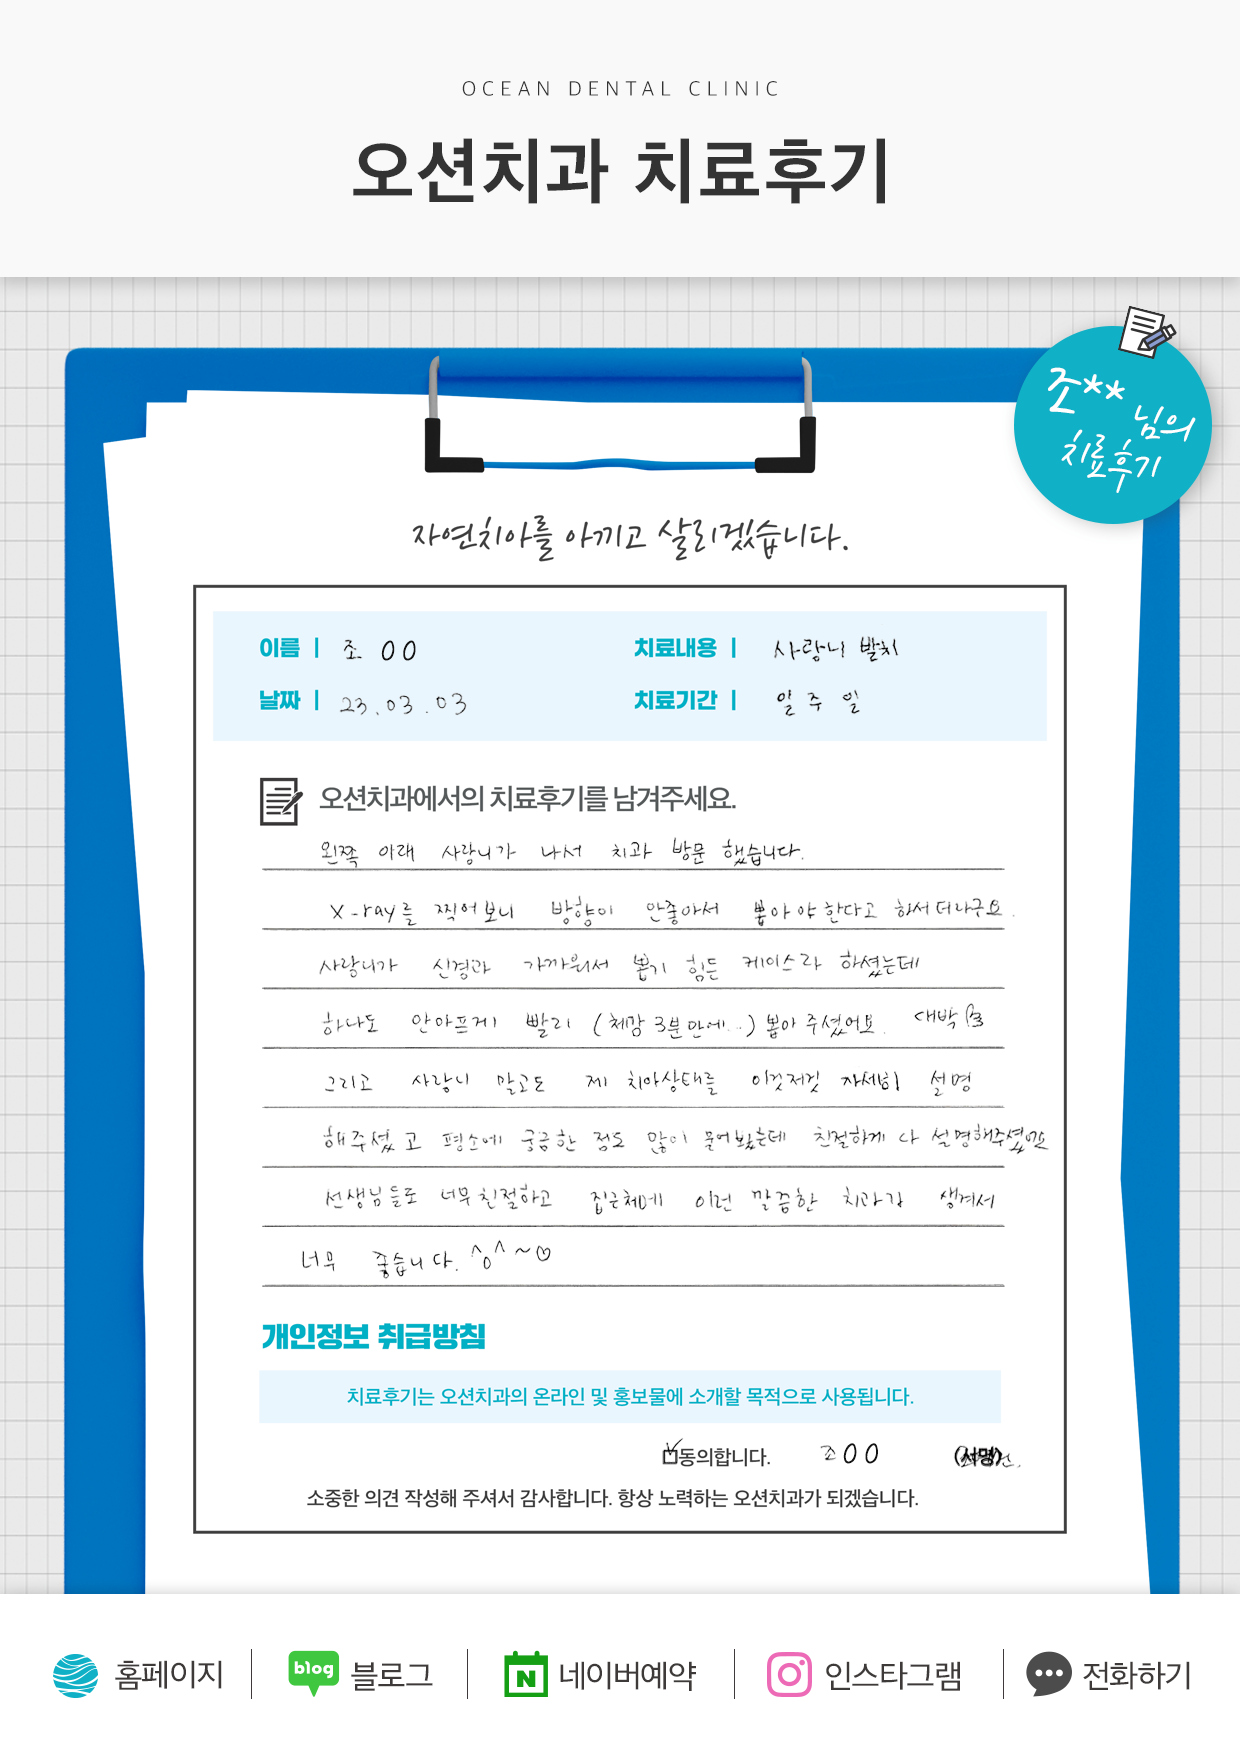 OCEAN DENTAL CLINIC
오션치과 치료후기
조** 님의
치료후기
자연치아를 아끼고 살리겠습니다.
이름 | 조 OO
치료내용 | 사랑니 발치
날짜 | 23.03.03
치료기간 | 일주일
오션치과에서의 치료후기를 남겨주세요.
왼쪽 아래 사랑니가 나서 치과 방문 했습니다.
X-ray를 찍어보니 방향이 안좋아서 뽑아야한다고 하셔더라구요.
사랑니가 신경과 가까워서 뽑기 힘든 케이스라 하셨는데
하나도 안아프게 빨리 (체감 3분만에..) 뽑아주셨어요. 대박
그리고 사랑니 말고도 제 치아상태를 이것저것 자세히 설명
해주셨고 평소에 궁금한 점도 많이 물어봤는데 친절하게 다 설명해주셨어요
선생님들도 너무친절하고 집근처에 이런 깔끔한 치과가 생겨서
너무 좋습니다. ^o^~♡
개인정보 취급방침
치료후기는 오션치과의 온라인 및 홍보물에 소개할 목적으로 사용됩니다.
동의합니다. 조 OO (서명)
소중한 의견 작성해 주셔서 감사합니다. 항상 노력하는 오션치과가 되겠습니다.
홈페이지
blog 블로그
N 네이버예약
인스타그램
전화하기